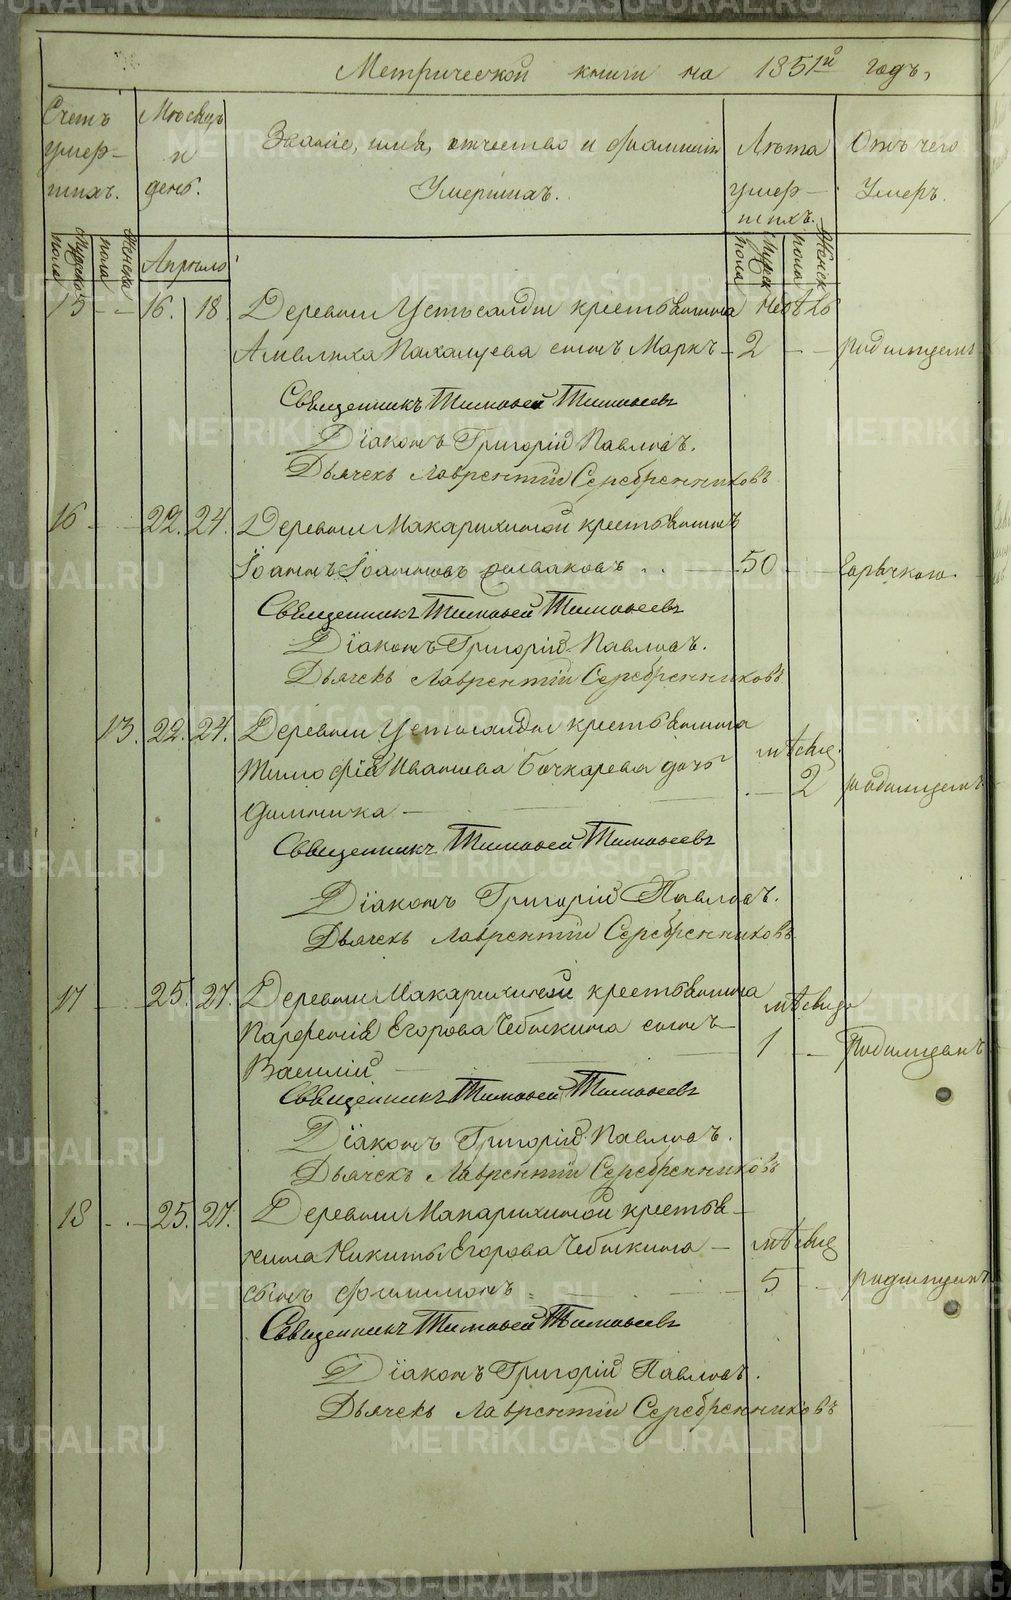 Метрической книги на 1851й годъ,
Счетъ умер-шихъ.
Мѣсяцъ и день.
Званіе, имя, отчество и фамилія Умершихъ.
Лѣта умер-шихъ.
Отъ чего Умеръ.
Мужска пола
Женска пола
Апрѣль
Мужск пола
Женск пола
15 - - 16. 18. Деревни Устьсалды крестьянина недѣль
Пахалуева сынъ Маркъ - 2 - - родимцемъ
Священникъ Тимофей Тимофеевъ
Діаконъ Григорій Павловъ.
Дьячекъ Лаврентій Серебренниковъ
16 - - 22. 24. Деревни Макарихиной крестьянинъ
Іоаннъ Іоанновъ 50 - - Горячкою.
Священникъ Тимофей Тимофеевъ
Діаконъ Григорій Павловъ.
Дьячекъ Лаврентій Серебренниковъ
13. 22. 24. Деревни Устьсалды крестьянина
Тимофѣя Иванова Бочкарева дочь мѣсяц.
Домника - 2 родимцемъ
Священникъ Тимофей Тимофеевъ
Діаконъ Григорій Павловъ.
Дьячекъ Лаврентій Серебренниковъ
17 - - 25. 27. Деревни Макарихиной крестьянина мѣсяца
Парфенія Егорова Чебыкина сынъ
Василій 1 - - Родимцемъ
Священникъ Тимофей Тимофеевъ
Діаконъ Григорій Павловъ.
Дьячекъ Лаврентій Серебренниковъ
18 - - 25. 27. Деревни Макарихиной крестья-
нина Никиты Егорова Чебыкина - мѣсяц
сынъ Филимонъ 5 - родимцемъ
Священникъ Тимофей Тимофеевъ
Діаконъ Григорій Павловъ.
Дьячекъ Лаврентій Серебренниковъ
METRIKI.GASO-URAL.RU